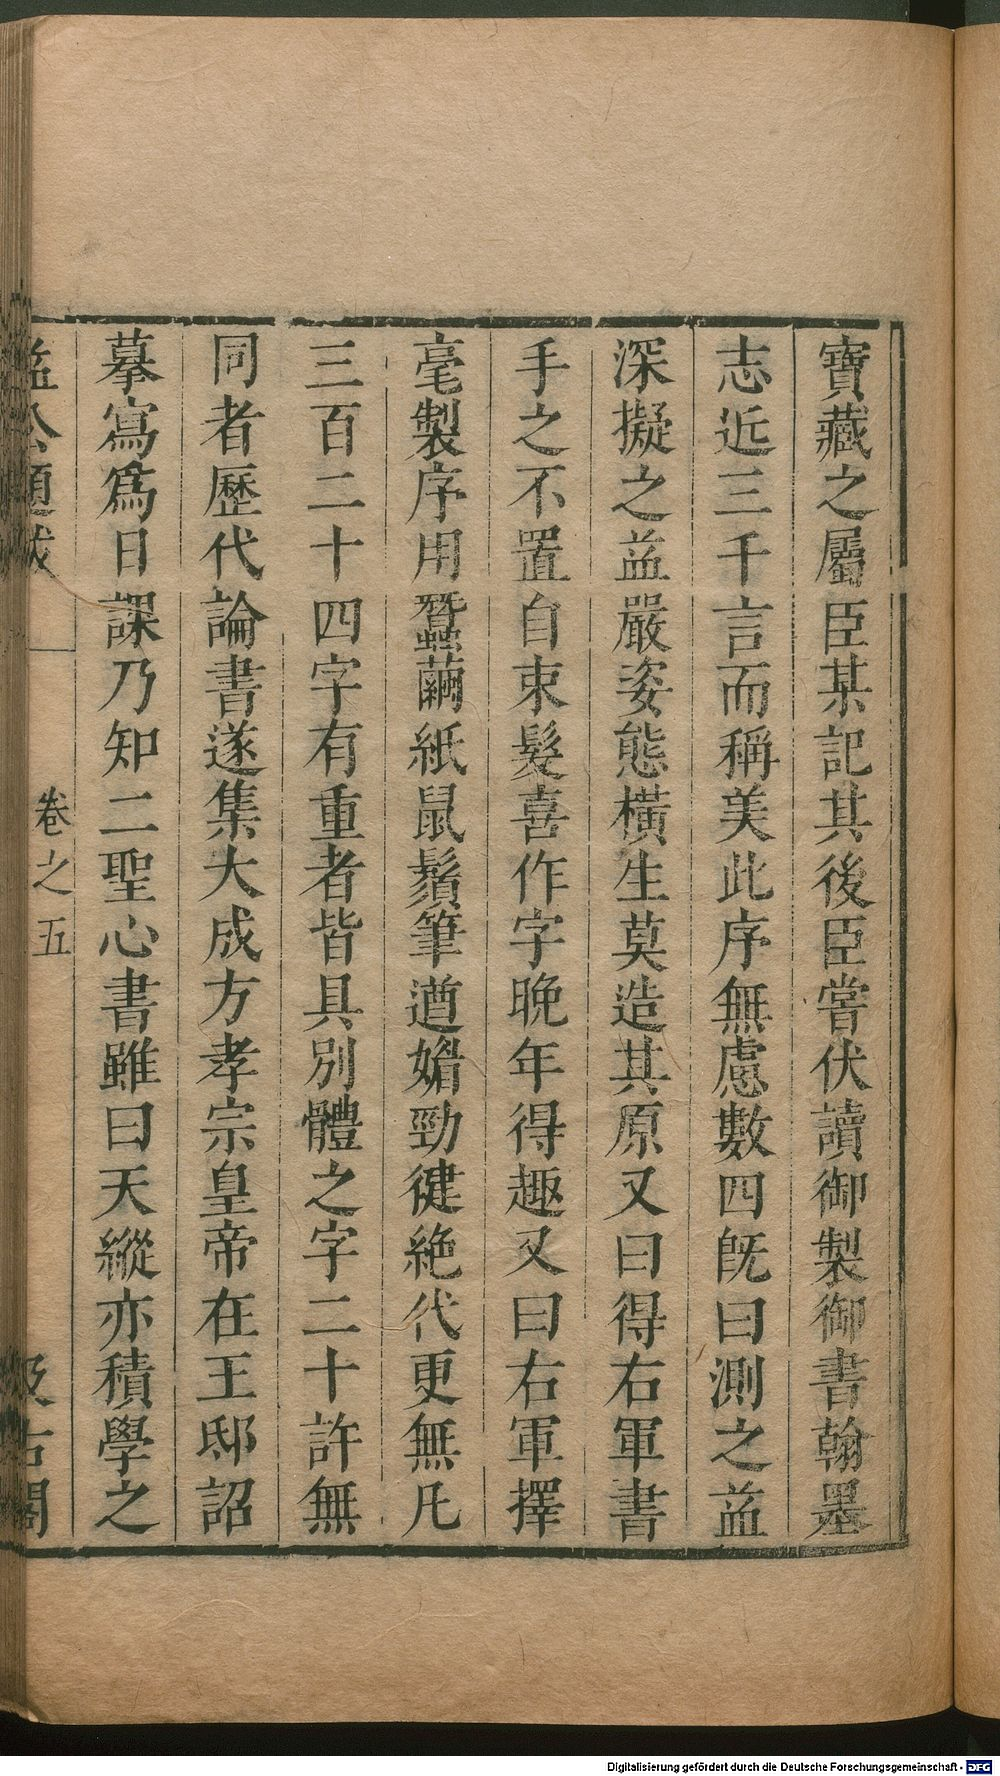 寶藏之屬臣某記其後臣嘗伏讀御製御書翰墨
志近三千言而稱美此序無慮數四旣曰測之益
深擬之益嚴姿態橫生莫造其原又曰得右軍書
手之不置自束髮喜作字晚年得趣又曰右軍擇
毫製序用蠶繭紙鼠鬚筆遒媚勁健絕代更無凡
三百二十四字有重者皆具別體之字二十許無
同者歷代論書遂集大成方孝宗皇帝在王邸詔
摹寫爲日課乃知二聖心書雖曰天縱亦積學之
益公題跋 卷之五 汲古閣
Digitalisierung gefördert durch die Deutsche Forschungsgemeinschaft - DFG